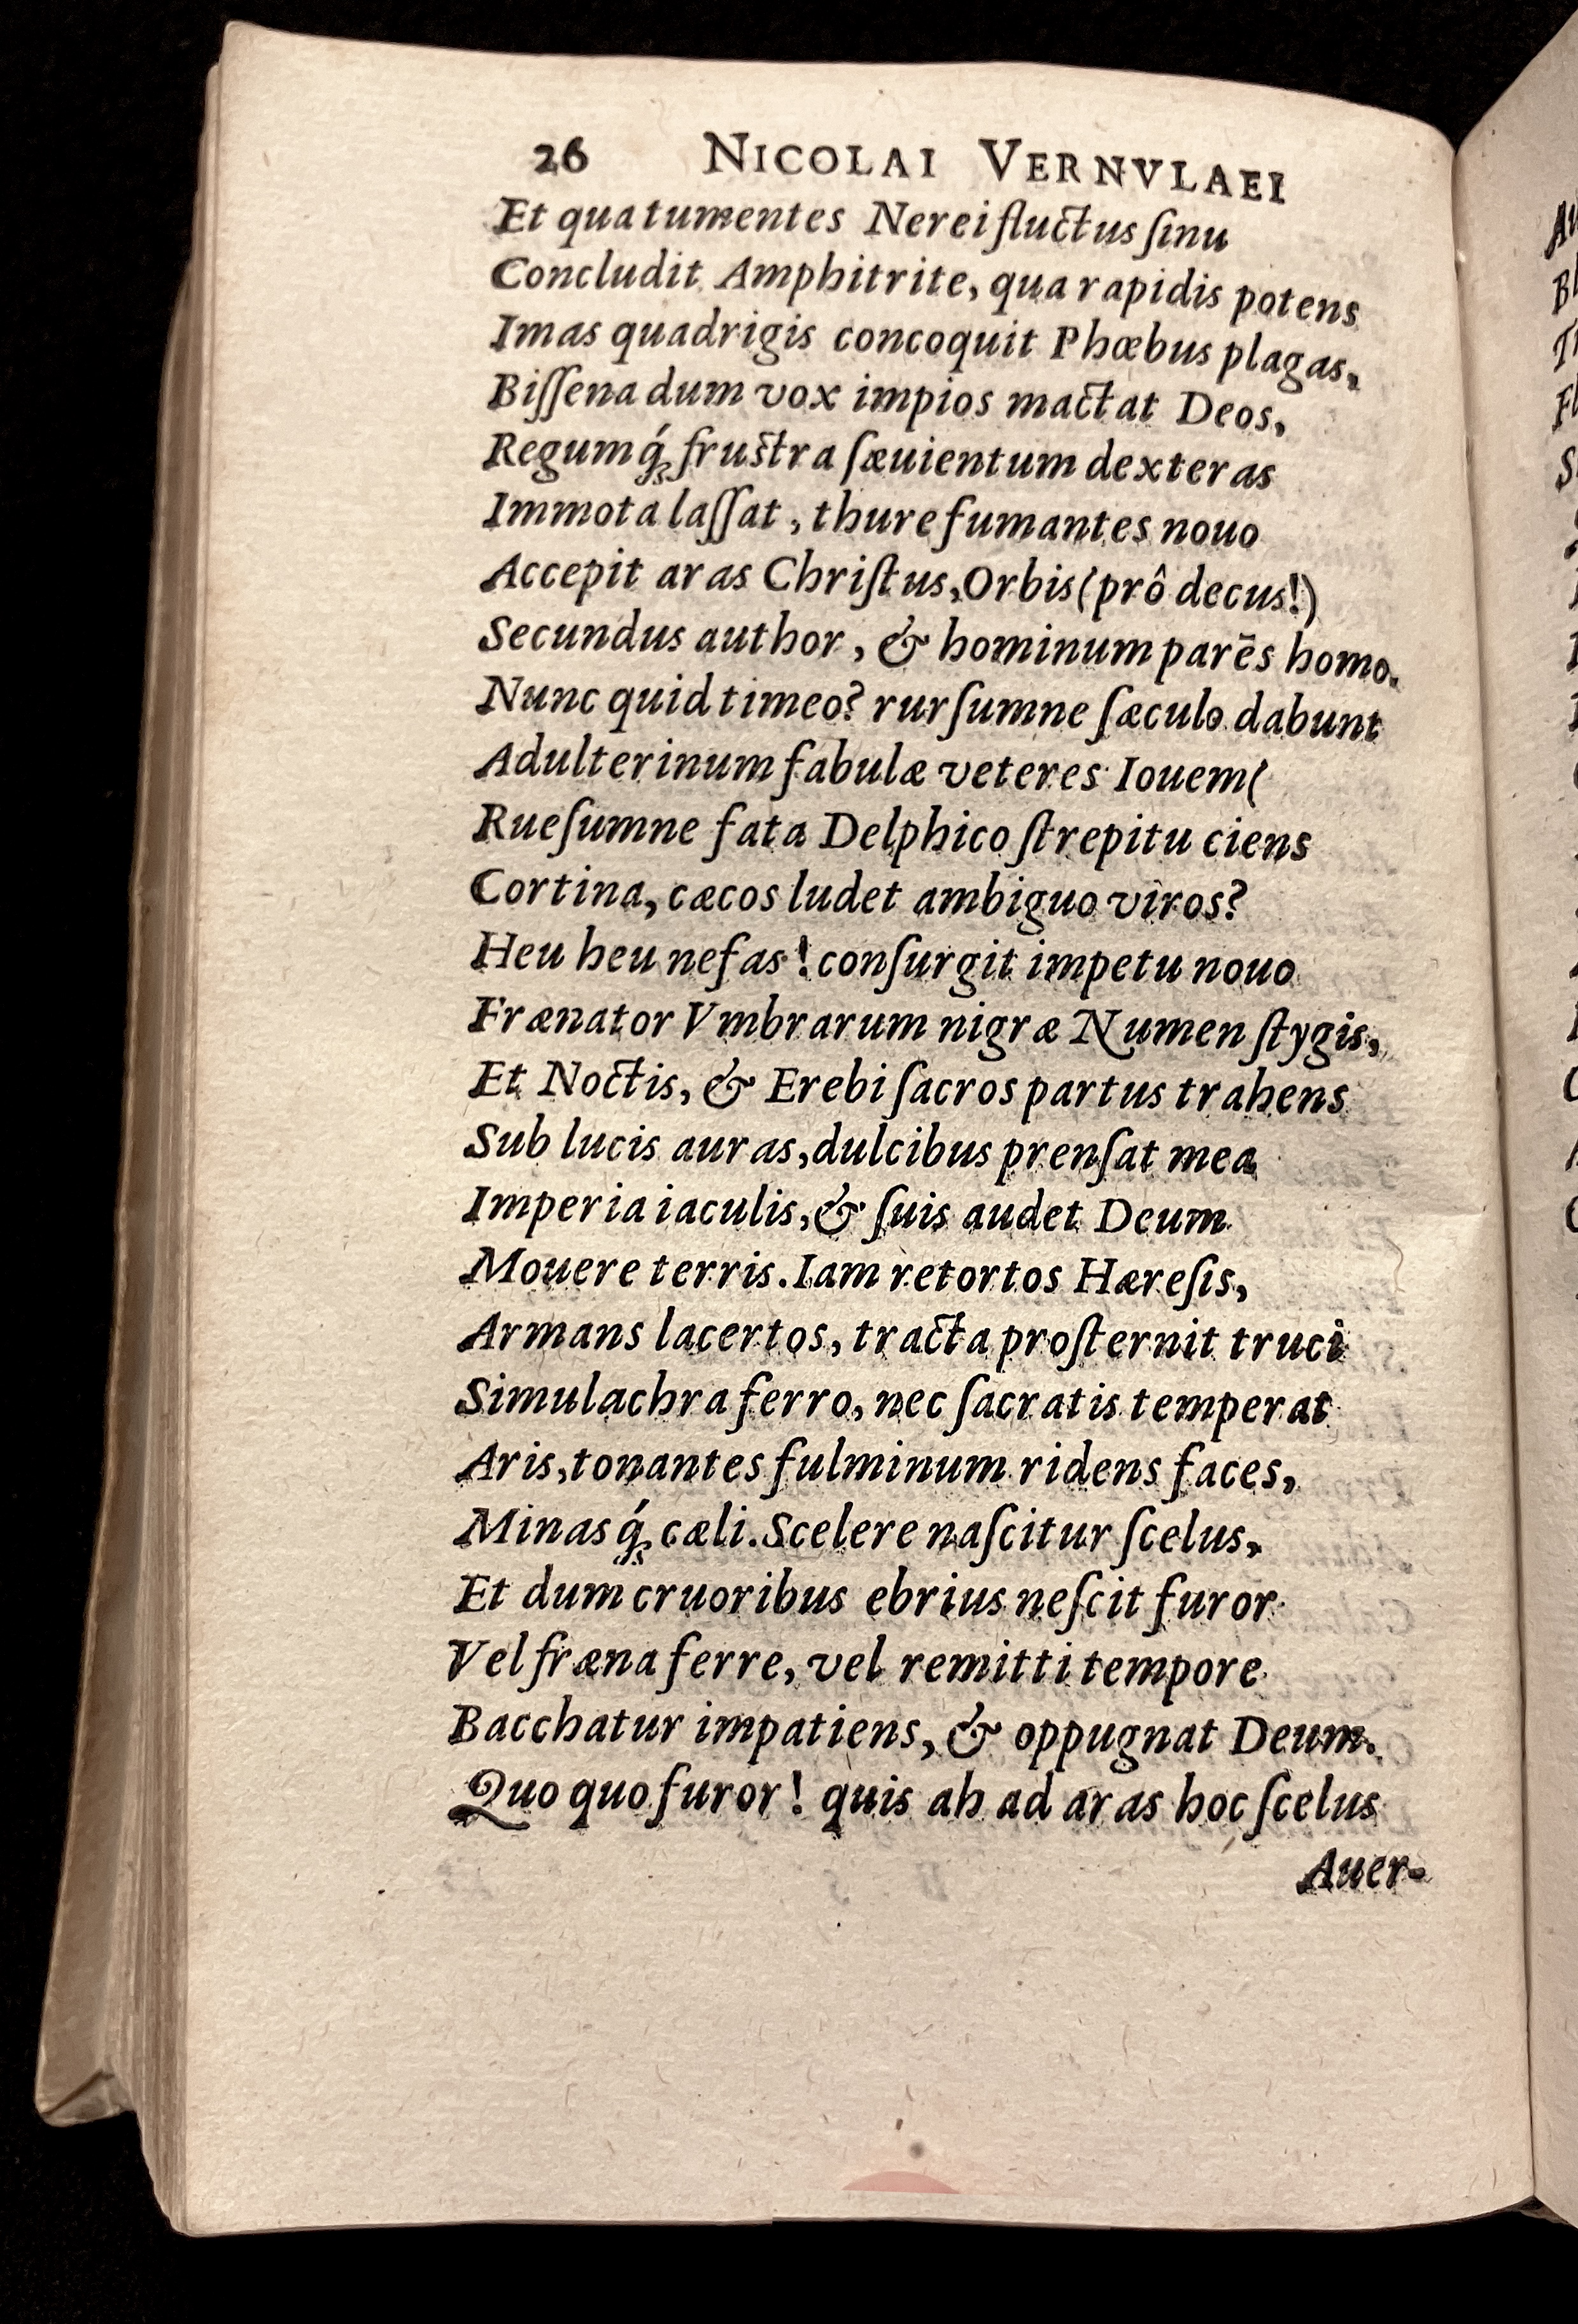 26 NICOLAI VERNVLAEI
Et qua tumentes Nerei fluctus ſinu
Concludit Amphitrite, qua rapidis potens
Imas quadrigis concoquit Phœbus plagas,
Biſſena dum vox impios mactat Deos,
Regumq́; fruſtra ſæuientum dexteras
Immota laſſat, thure fumantes nouo
Accepit aras Chriſtus, Orbis (prô decus!)
Secundus author, & hominum parēs homo.
Nunc quid timeo? rurſumne ſæculo dabunt
Adulterinum fabulæ veteres Iouem(
Rueſumne fata Delphico ſtrepitu ciens
Cortina, cæcos ludet ambiguo viros?
Heu heu nefas! conſurgit impetu nouo
Frænator Vmbrarum nigræ Numen ſtygis,
Et Noctis, & Erebi ſacros partus trahens
Sub lucis auras, dulcibus prenſat mea
Imperia iaculis, & ſuis audet Deum
Mouere terris. Iam retortos Hæreſis,
Armans lacertos, tracta proſternit truci
Simulachra ferro, nec ſacratis temperat
Aris, tonantes fulminum ridens faces,
Minasq́; cæli. Scelere naſcitur ſcelus,
Et dum cruoribus ebrius neſcit furor
Vel fræna ferre, vel remitti tempore
Bacchatur impatiens, & oppugnat Deum.
Quo quo furor! quis ah ad aras hoc ſcelus
Auer-